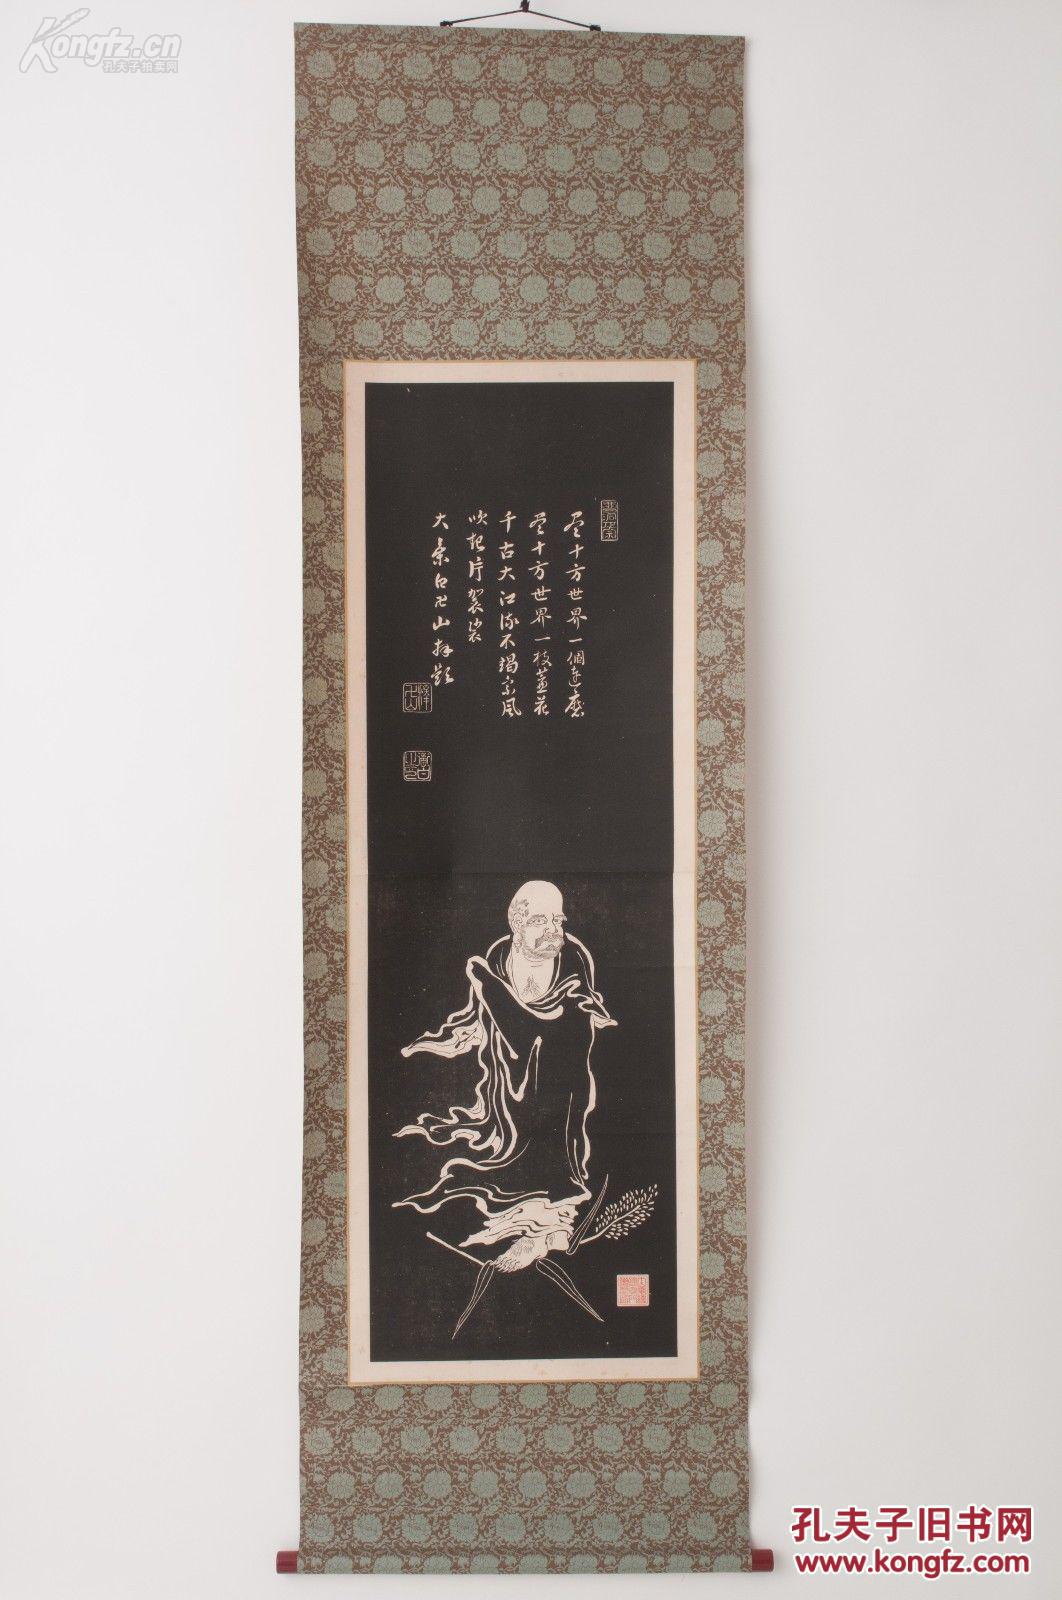 Kongfz.cn
孔夫子拍卖网
尽十方世界一個達磨
尽十方世界一枝蘆花
千古大江流不竭宗風
吹起片袈裟
大乗白卍山拜題
卍山
孔夫子旧书网
www.kongfz.com